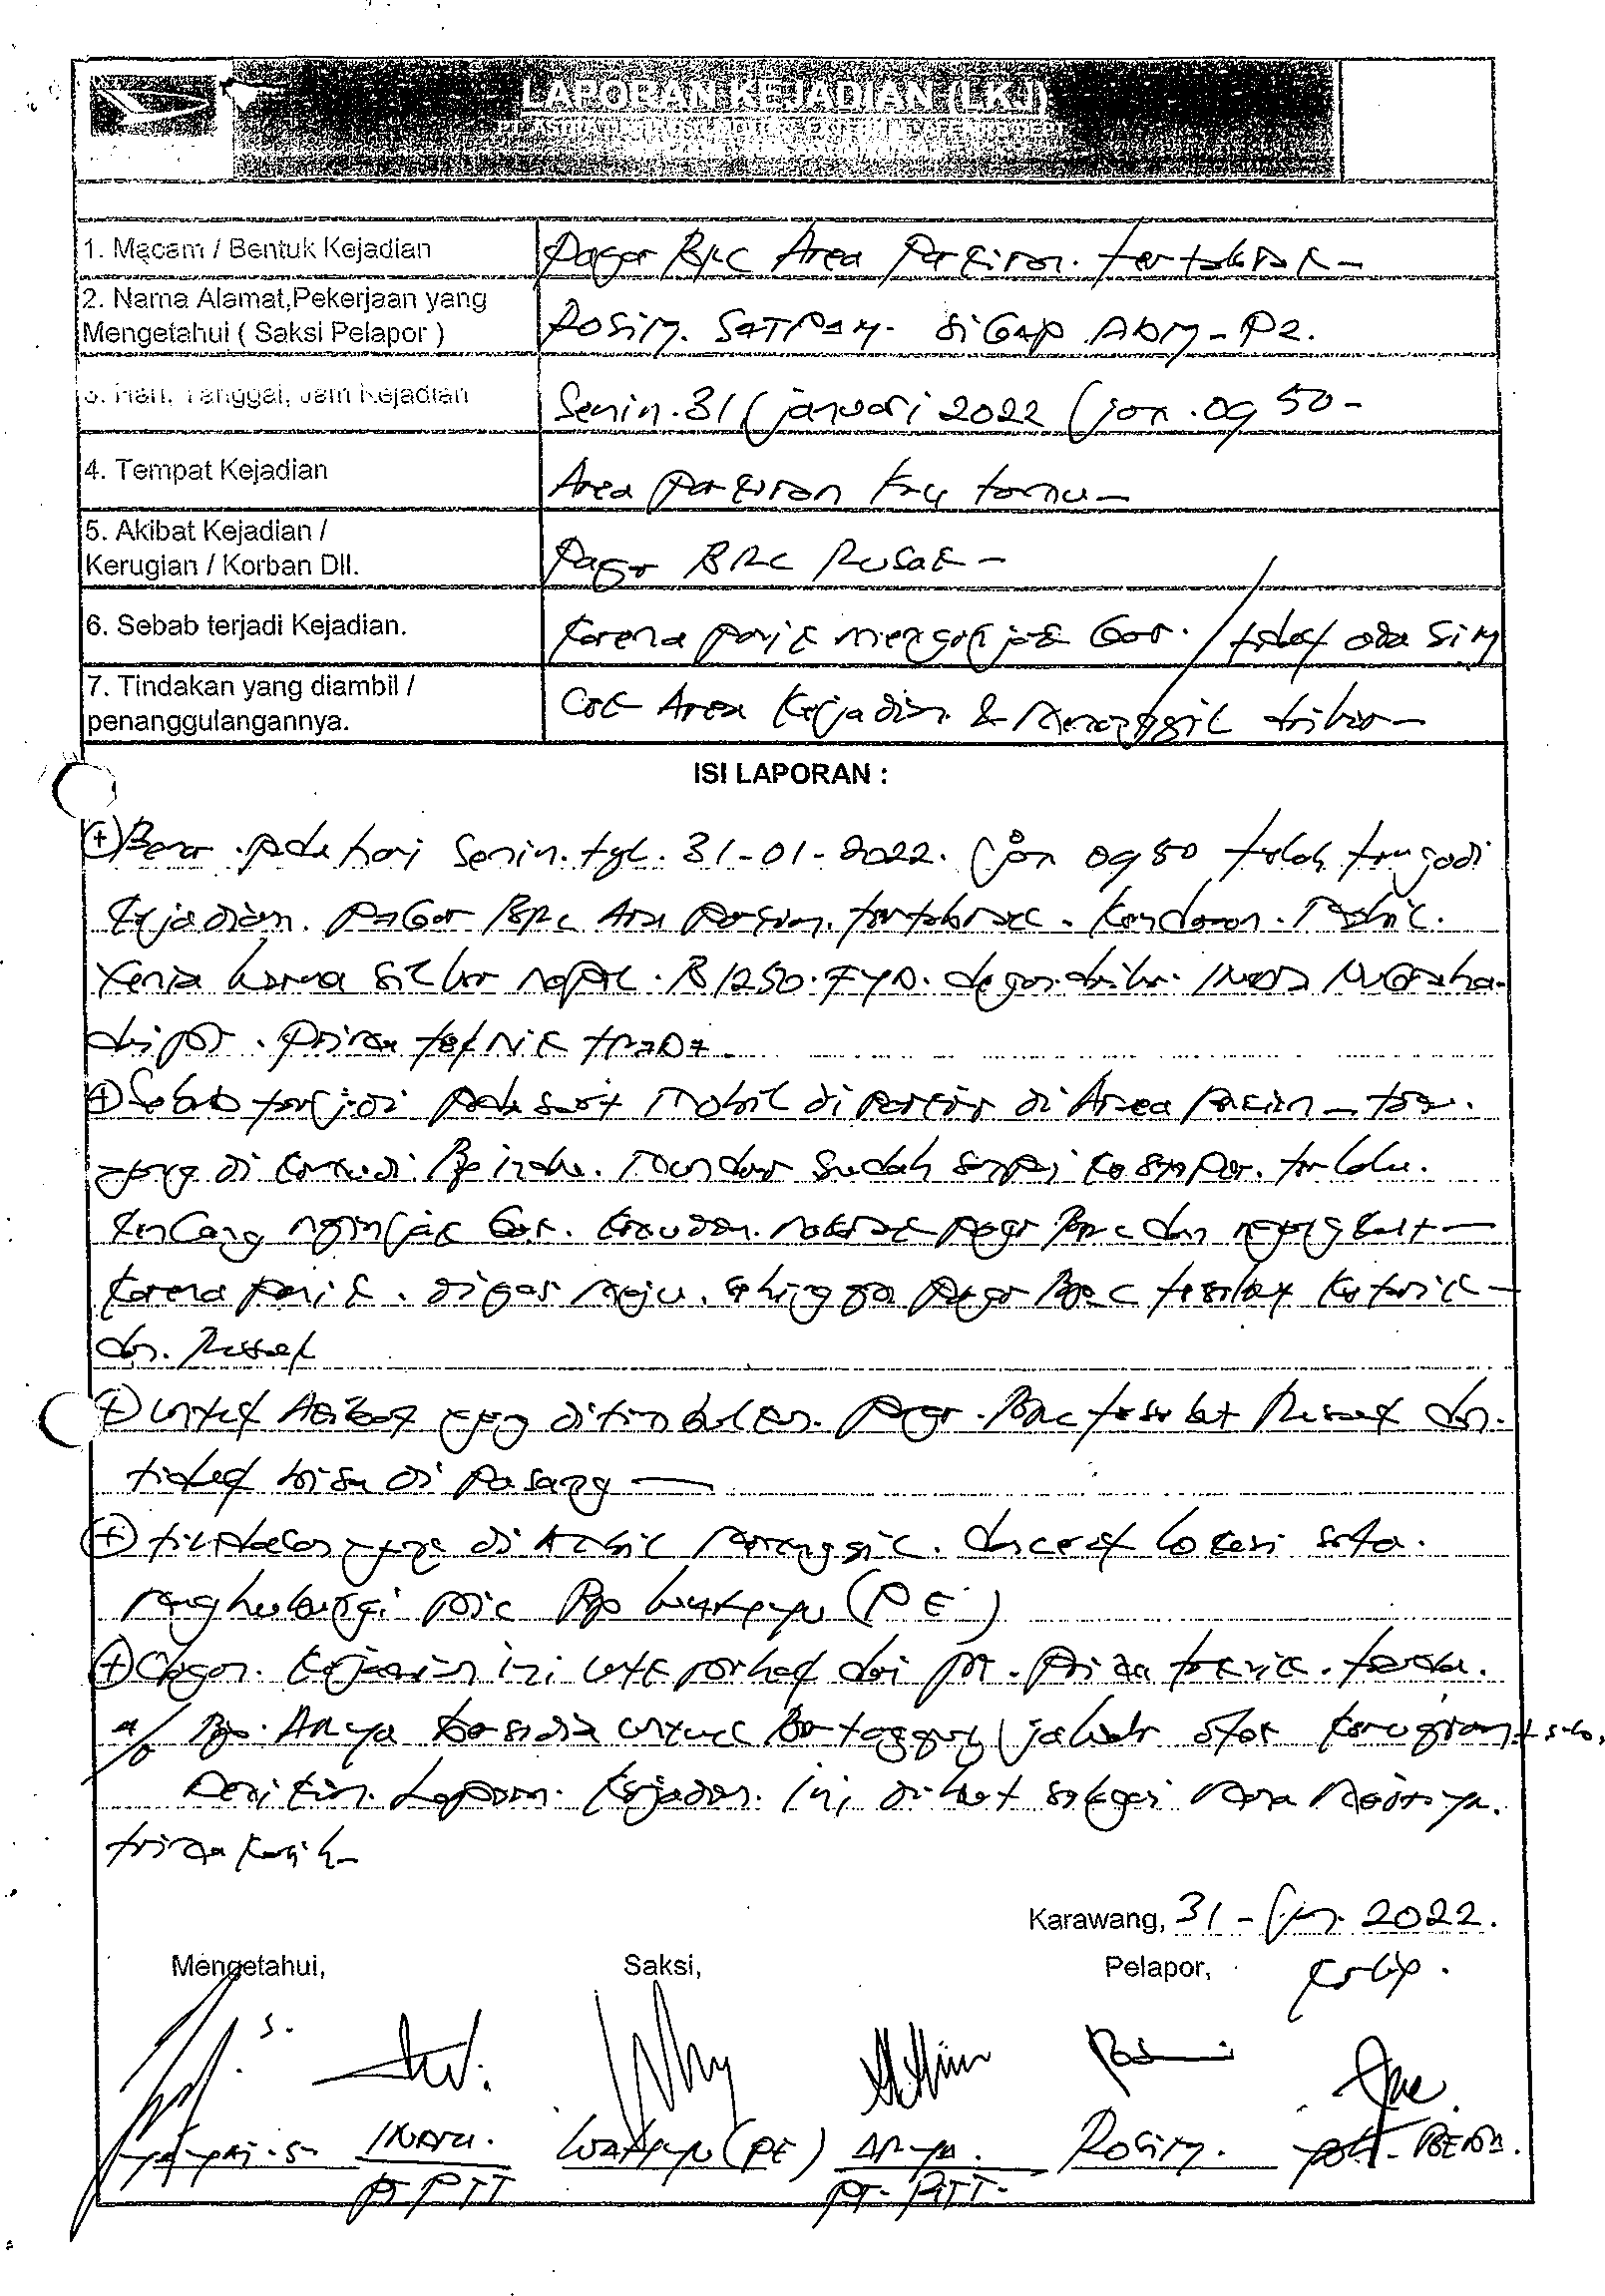 LAPORAN KEJADIAN (LKJ)
PT ASTRA DAIHATSU MOTOR EXTERNAL AFFAIRS DEPT
1. Macam / Bentuk Kejadian
Pagar BRC Area Parkiran. tertabrak -
2. Nama Alamat,Pekerjaan yang
Mengetahui ( Saksi Pelapor )
ROSIM. SATPAM. SIGAP ADM - P2.
3. Hari, Tanggal, Jam Kejadian
Senin. 31 januari 2022 (jam. 09 50 -
4. Tempat Kejadian
Area parkiran tamu -
5. Akibat Kejadian /
Kerugian / Korban Dll.
Pagar BRC Rusak -
6. Sebab terjadi Kejadian.
Karena panik menginjak Gas. / tidak ada SIM
7. Tindakan yang diambil /
penanggulangannya.
Cek Area Kejadian & Memanggil driver -
ISI LAPORAN :
Benar. pada hari Senin. tgl. 31-01-2022. jam 09 50 telah terjadi
Kejadian. Pagar BRC Area Parkiran. tertabrak. Kendaraan. Mobil.
Xenia warna silver nopol. B 1250. FYD. dengan driver.
dari PT. Prima teknik
Sebab terjadi pada saat Mobil di parkir di Area Parkiran -
yang di kemudi. Bp Mundur sudah sampai ke stoper. terlalu.
kencang nginjak Gas. nabrak pagar BRC dan
karena panik. di gas maju. sehingga pagar BRC
dan. Rusak
untuk Akibat yang ditimbulkan. Pagar. BRC tersebut Rusak dan.
tidak bisa di pasang
tindakan yang di Ambil Memanggil. dan cek lokasi serta.
menghubungi PIC Bp Wahyu (PE)
dengan. Kejadian ini pihak dari PT. Prima teknik.
a/n Bp. Arya bersedia untuk Bertanggung jawab atas kerugian
Demikian. Laporan. Kejadian. ini, dibuat sebagai Mana Mestinya.
trima kasih -
Karawang, 31 - Jan. 2022.
Mengetahui,
Saksi,
Pelapor,
Wahyu (PE)
ARYA.
ROSIM.
PT PTT
PT- PTT-